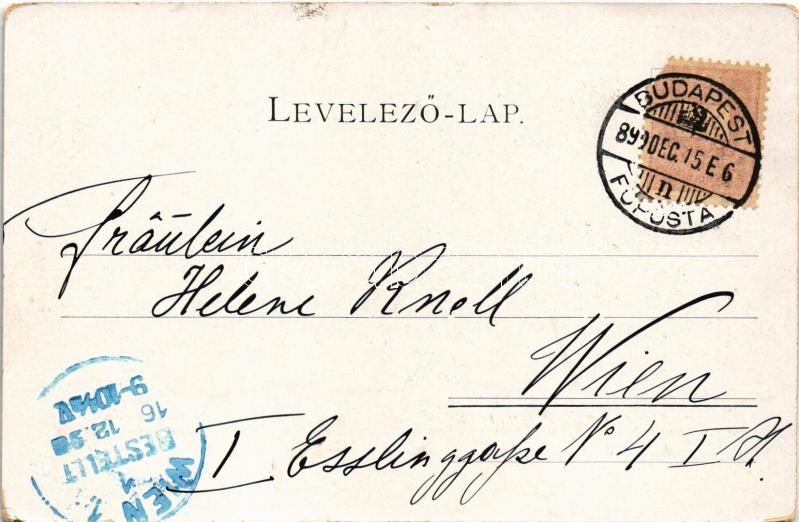 LEVELEZŐ-LAP.
BUDAPEST
899 DEC. 15 E 6
n
FŐPOSTA
Fräulein
Helene Knoll
Wien
I Esslinggaße No 4 I H.
WIEN
1
BESTELLT
16 12.99
9-10½V